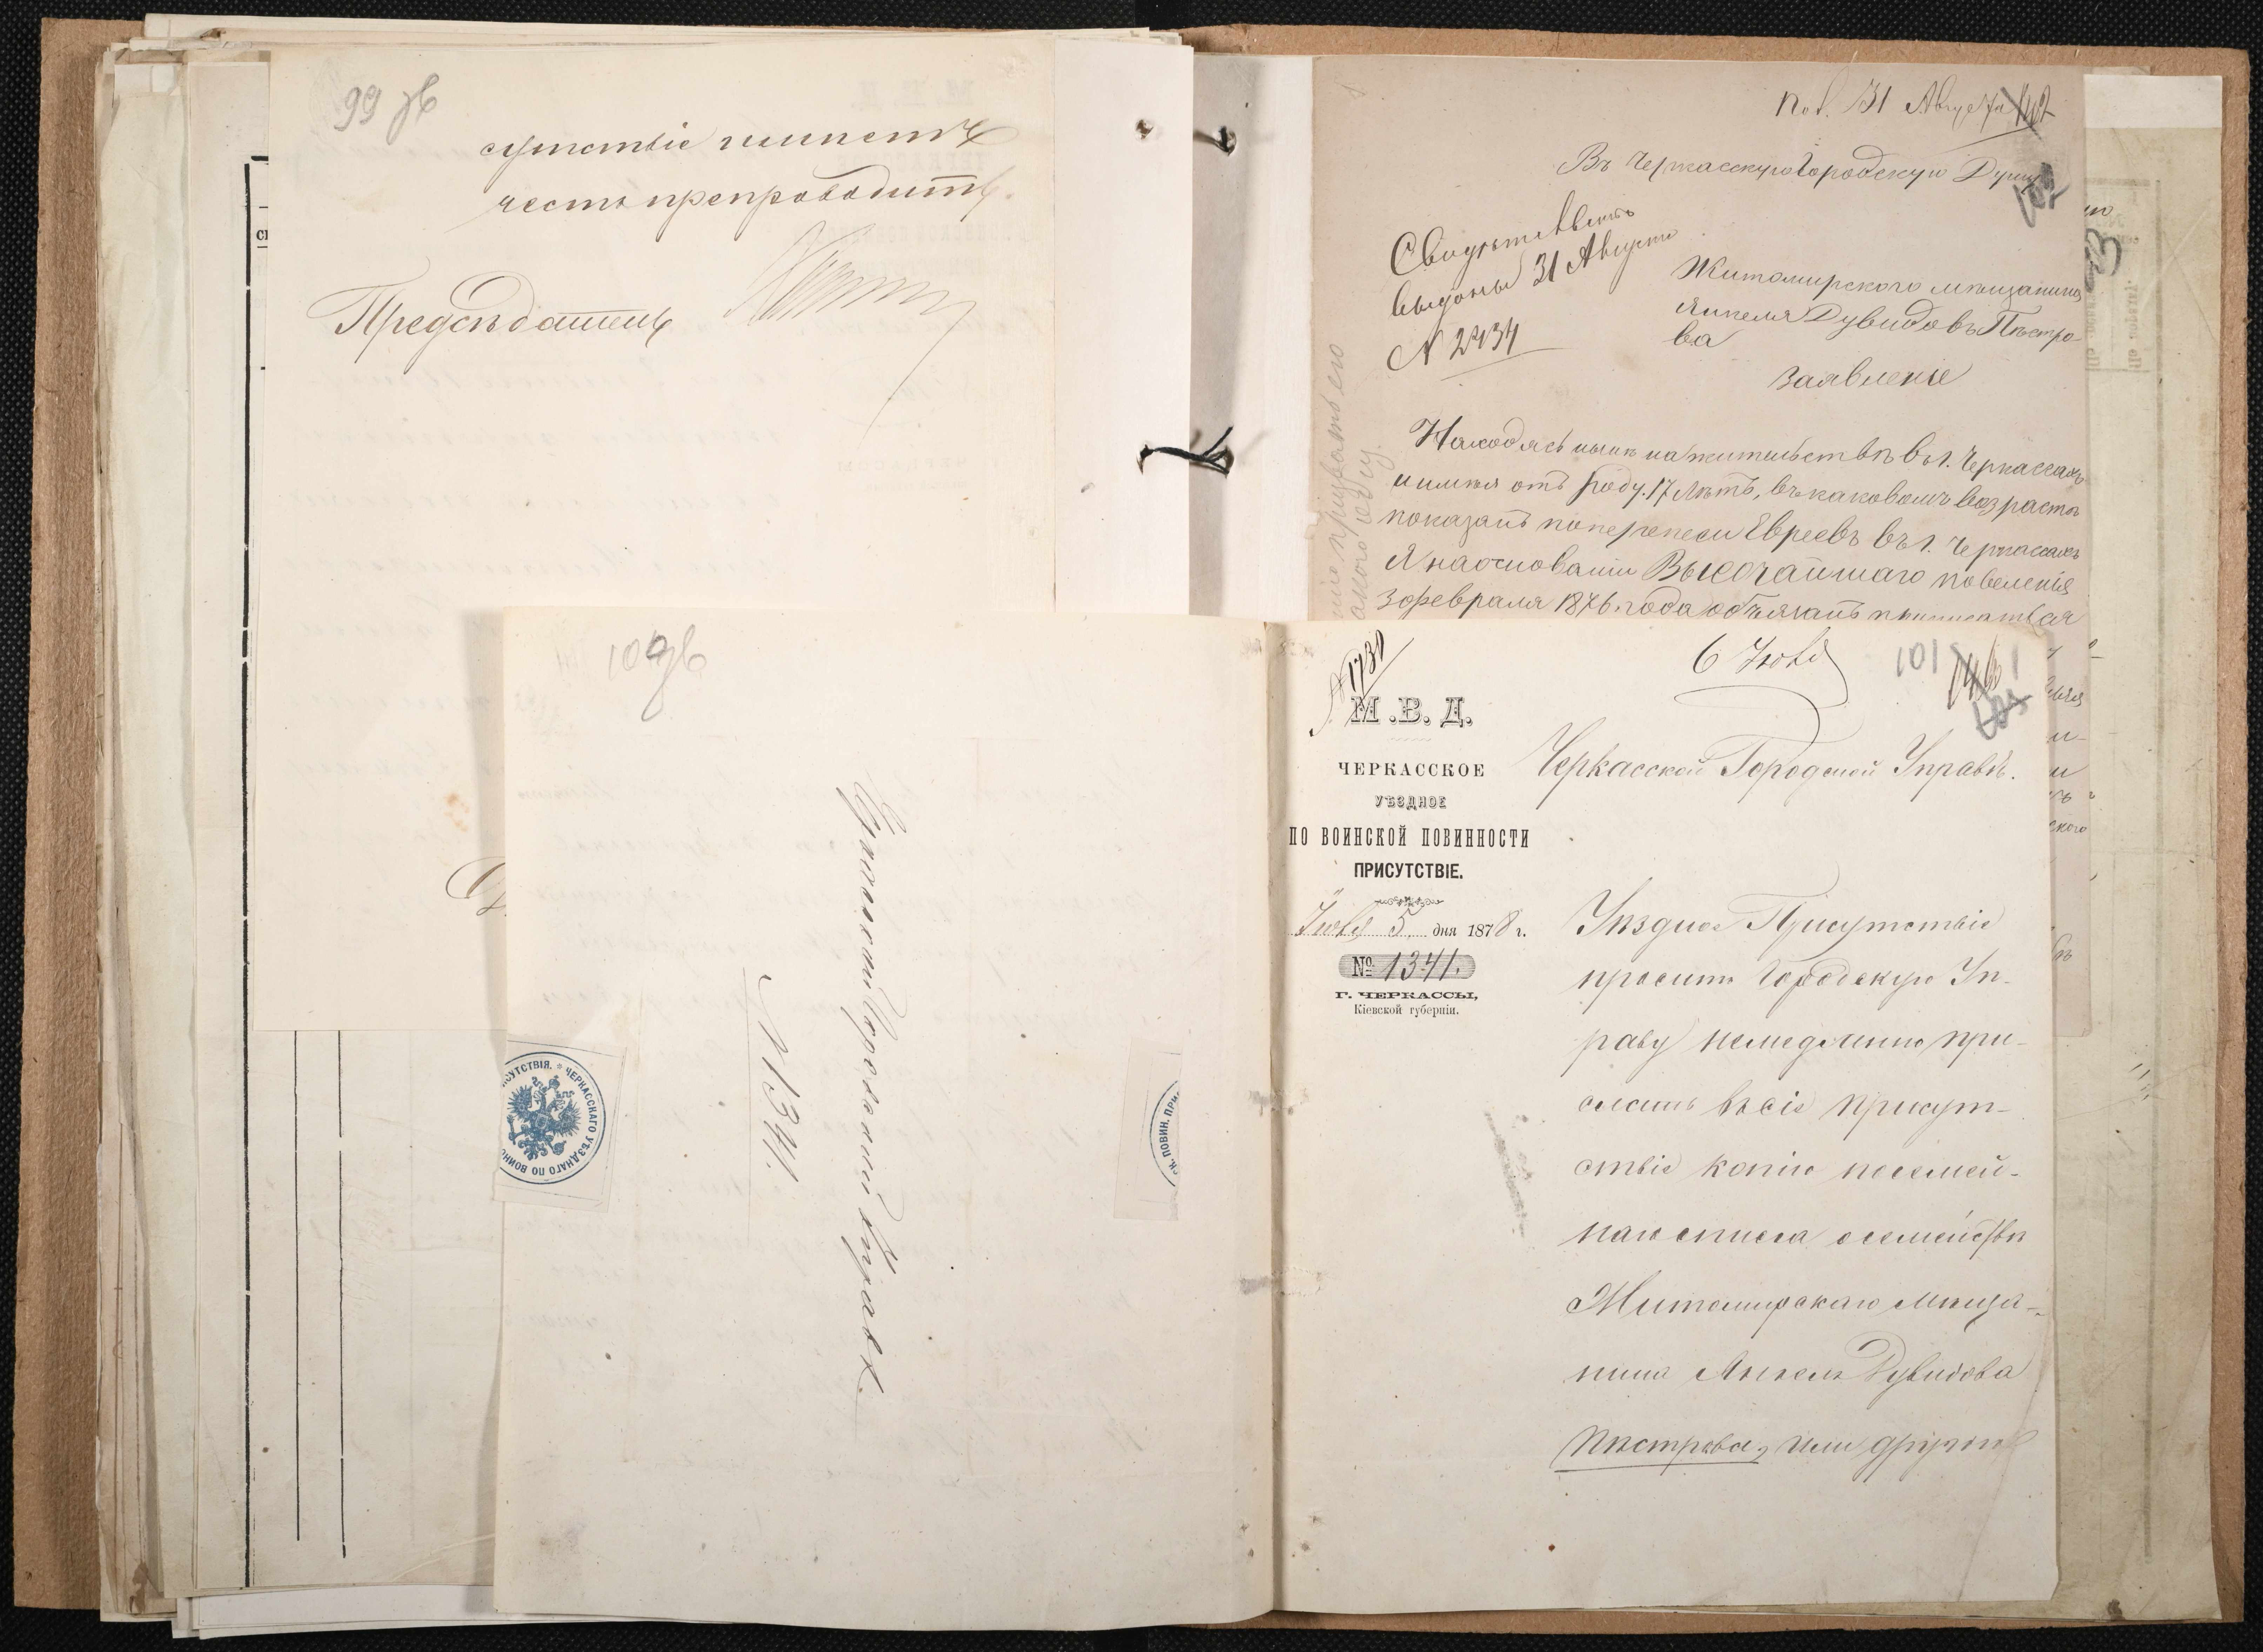 99 зв
сутствіе имѣетъ
честь препроводить.
Предсѣдатель
Пол. 31 Августа
102
Въ Черкасскую Городскую Думу
Свидѣтельство
выдано 31 Августа
N 2434
Житомирскаго мѣщанина
Янкеля Дувидовъ Пѣстро-
ва
Заявленіе
Находясь нынѣ на жительствѣ въ г. Черкассахъ
и имѣя отъ роду 17 лѣтъ, въ каковомъ возрастѣ
показанъ по переписи Евреевъ въ г. Черкассахъ
я на основаніи Высочайшаго повеленія
3 февраля 1876 года обязанъ приписаться
100 зв
Черкасской Городской Управѣ.
N 1341.
ИСУТСТВІЯ. * ЧЕРКАССКАГО УѢЗДНАГО ПО ВОИНС
СК. ПОВИН. ПРИ
N 1730
6 Іюля
101
М.В.Д.
ЧЕРКАССКОЕ
УѢЗДНОЕ
ПО ВОИНСКОЙ ПОВИННОСТИ
ПРИСУТСТВІЕ.
Іюля 5 дня 1878 г.
№ 1341.
Г. ЧЕРКАССЫ,
Кіевской губерніи.
Черкасской Городской Управѣ.
Уѣздное Присутствіе
проситъ Городскую Уп-
раву немедленно при-
слать въ сіе присут-
ствіе копію посемей-
наго списка о семействѣ
Житомирскаго мѣща-
нина Янкеля Дувидова
Пѣстрова, или другія